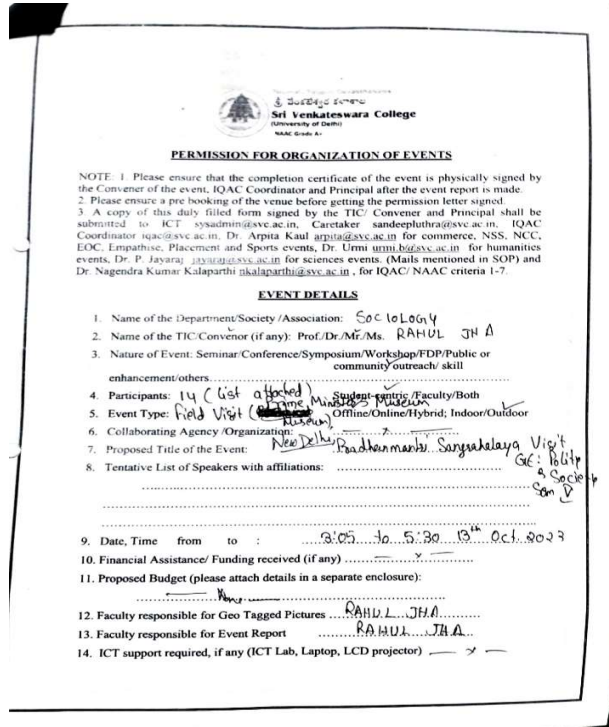 శ్రీ వేంకటేశ్వర కళాశాల
Sri Venkateswara College
(University of Delhi)
NAAC Grade A+
PERMISSION FOR ORGANIZATION OF EVENTS
NOTE: 1. Please ensure that the completion certificate of the event is physically signed by
the Convener of the event, IQAC Coordinator and Principal after the event report is made.
2. Please ensure a pre booking of the venue before getting the permission letter signed.
3. A copy of this duly filled form signed by the TIC/ Convener and Principal shall be
submitted to ICT sysadmin@svc.ac.in, Caretaker sandeepluthra@svc.ac.in, IQAC
Coordinator iqac@svc.ac.in, Dr. Arpita Kaul arpita@svc.ac.in for commerce, NSS, NCC,
EOC, Empathise, Placement and Sports events, Dr. Urmi urmi.b@svc.ac.in for humanities
events, Dr. P. Jayaraj jayaraj@svc.ac.in for sciences events. (Mails mentioned in SOP) and
Dr. Nagendra Kumar Kalaparthi nkalaparthi@svc.ac.in , for IQAC/ NAAC criteria 1-7.
EVENT DETAILS
1. Name of the Department/Society /Association: SOCIOLOGY
2. Name of the TIC/Convenor (if any): Prof./Dr./Mr./Ms. RAHUL JHA
3. Nature of Event: Seminar/Conference/Symposium/Workshop/FDP/Public or
community outreach/ skill
enhancement/others
4. Participants: 14 (list attached) Student-centric /Faculty/Both
5. Event Type: Field Visit (Prime Ministers Museum Museum) Offline/Online/Hybrid; Indoor/Outdoor
6. Collaborating Agency /Organization: x
7. Proposed Title of the Event: New Delhi, Pradhanmantri Sangrahalaya Visit
GE: Polity & Society Sem V
8. Tentative List of Speakers with affiliations:
9. Date, Time from to : 3:05 to 5:30 13th Oct. 2023
10. Financial Assistance/ Funding received (if any) x
11. Proposed Budget (please attach details in a separate enclosure):
None
12. Faculty responsible for Geo Tagged Pictures RAHUL JHA
13. Faculty responsible for Event Report RAHUL JHA
14. ICT support required, if any (ICT Lab, Laptop, LCD projector) x